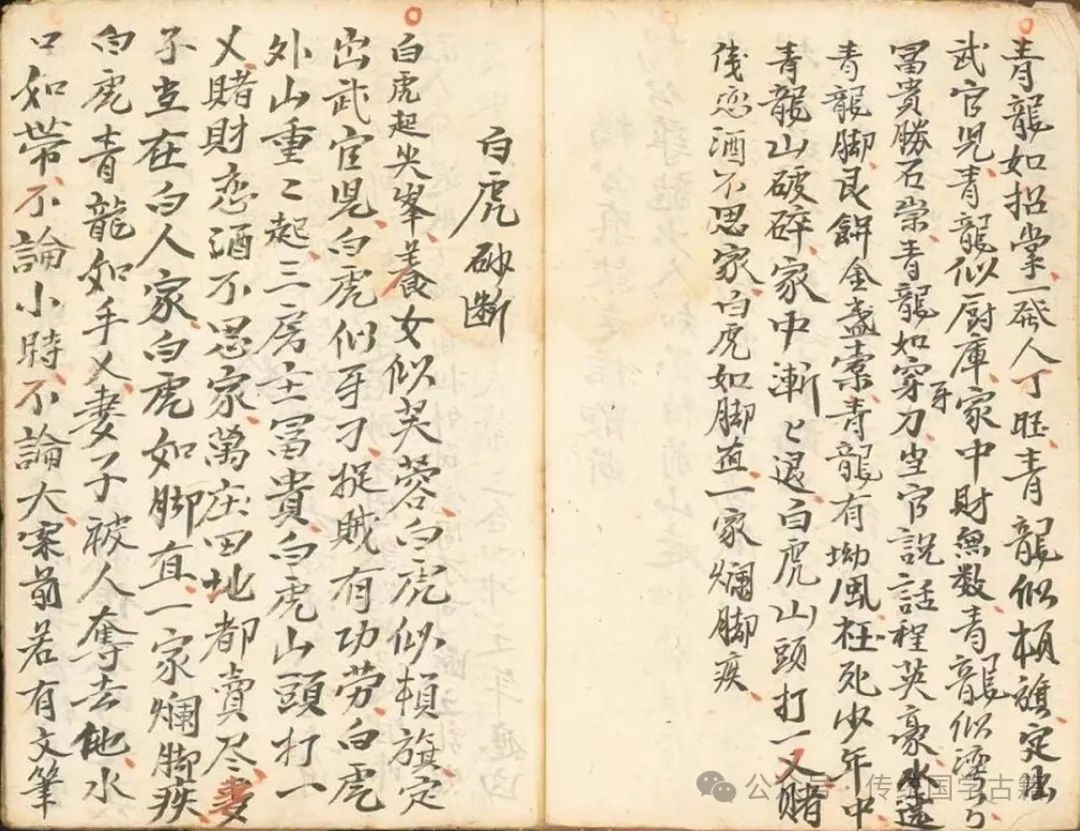 青龍如招掌、一發人丁旺、青龍似頓旗、定出
武官児、青龍似厨庫、家中財無数、青龍似
冨貴勝石崇、青龍如穿刀、牙 坐官説話程英豪、水遶
青龍脚、艮餅金盞、青龍有坳風、枉死少年中、
青龍山破碎、家中漸々退、白虎山頭打一乂、賭
伐恋酒不思家、白虎如脚直、一家爛脚疾、
白虎砂断
白虎起尖峯、養女似芙蓉、白虎似頓旗、定
出武官児、白虎似牙刁、捉賊有功劳、白虎
外山重〻起、三房主冨貴、白虎山頭打一
乂、賭財恋酒不思家、萬庄田地都賣尽、妻
子立在白人家、白虎如脚直、一家爛脚疾
白虎青龍如手乂、妻子被人奪去他、水
口如帶、不論小時、不論大、案前若有文筆
公众号·传统国学古籍